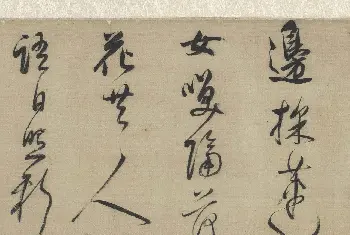 邊採蓮
女笑隔荷
花共人
語日照新